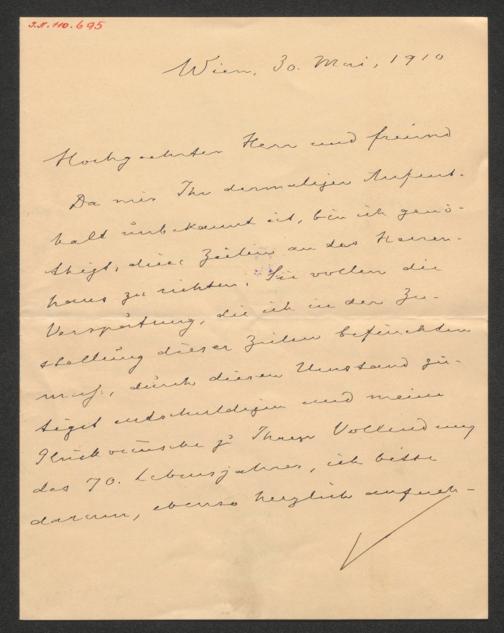 I.N. 110.695
Wien, 30. Mai, 1910
Hochgeehrter Herr und Freund
Da mir Ihr dermaliger Aufent-
halt unbekannt ist, bin ich genö-
thigt, diese Zeilen an das Herren-
haus zu richten. Sie wollen die
Verspätung, die ich in der Zu-
stellung dieser Zeilen befürchten
muß, durch diesen Umstand gü-
tigst entschuldigen und meine
Glückwünsche zu Ihrer Vollendung
des 70. Lebensjahres, ich bitte
darum, ebenso herzlich aufneh-